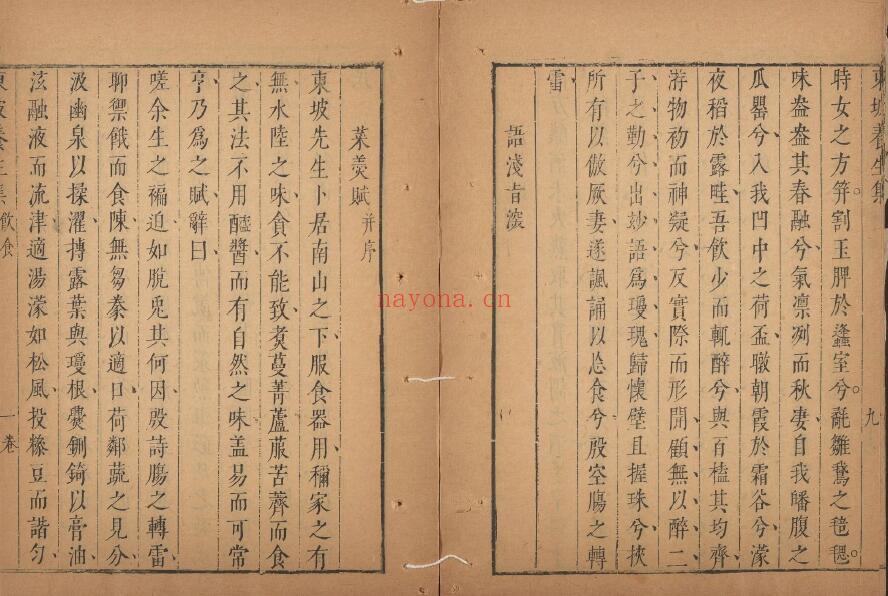 東坡養生集
九
時女之方笄割玉脾於蠭室兮氄雛鵞之毰毸
味盎盎其春融兮氣凛冽而秋凄自我皤腹之
瓜罌兮入我凹中之荷盃暾朝霞於霜谷兮濛
夜稻於露畦吾飲少而輒醉兮與百榼其均齊
游物初而神凝兮反實際而形開顧無以醉二
子之勤兮出妙語爲瓊瑰歸懷璧且握珠兮挾
所有以傲厥妻遂諷誦以忘食兮殷空膓之轉
雷
語淺旨溇
菜羮賦并序
東坡先生卜居南山之下服食器用稱家之有
無水陸之味貧不能致煑蔓菁蘆菔苦薺而食
之其法不用醯醬而有自然之味葢易而可常
亨乃爲之賦辭曰
嗟余生之褊迫如脫兎其何因殷詩膓之轉雷
聊禦餓而食陳無芻豢以適口荷鄰蔬之見分
汲幽泉以揉濯摶露葉與瓊根爨鉶錡以膏油
泫融液而流津適湯濛如松風投糝豆而諧勻
東坡養生集
飲食
一卷
nayona.cn